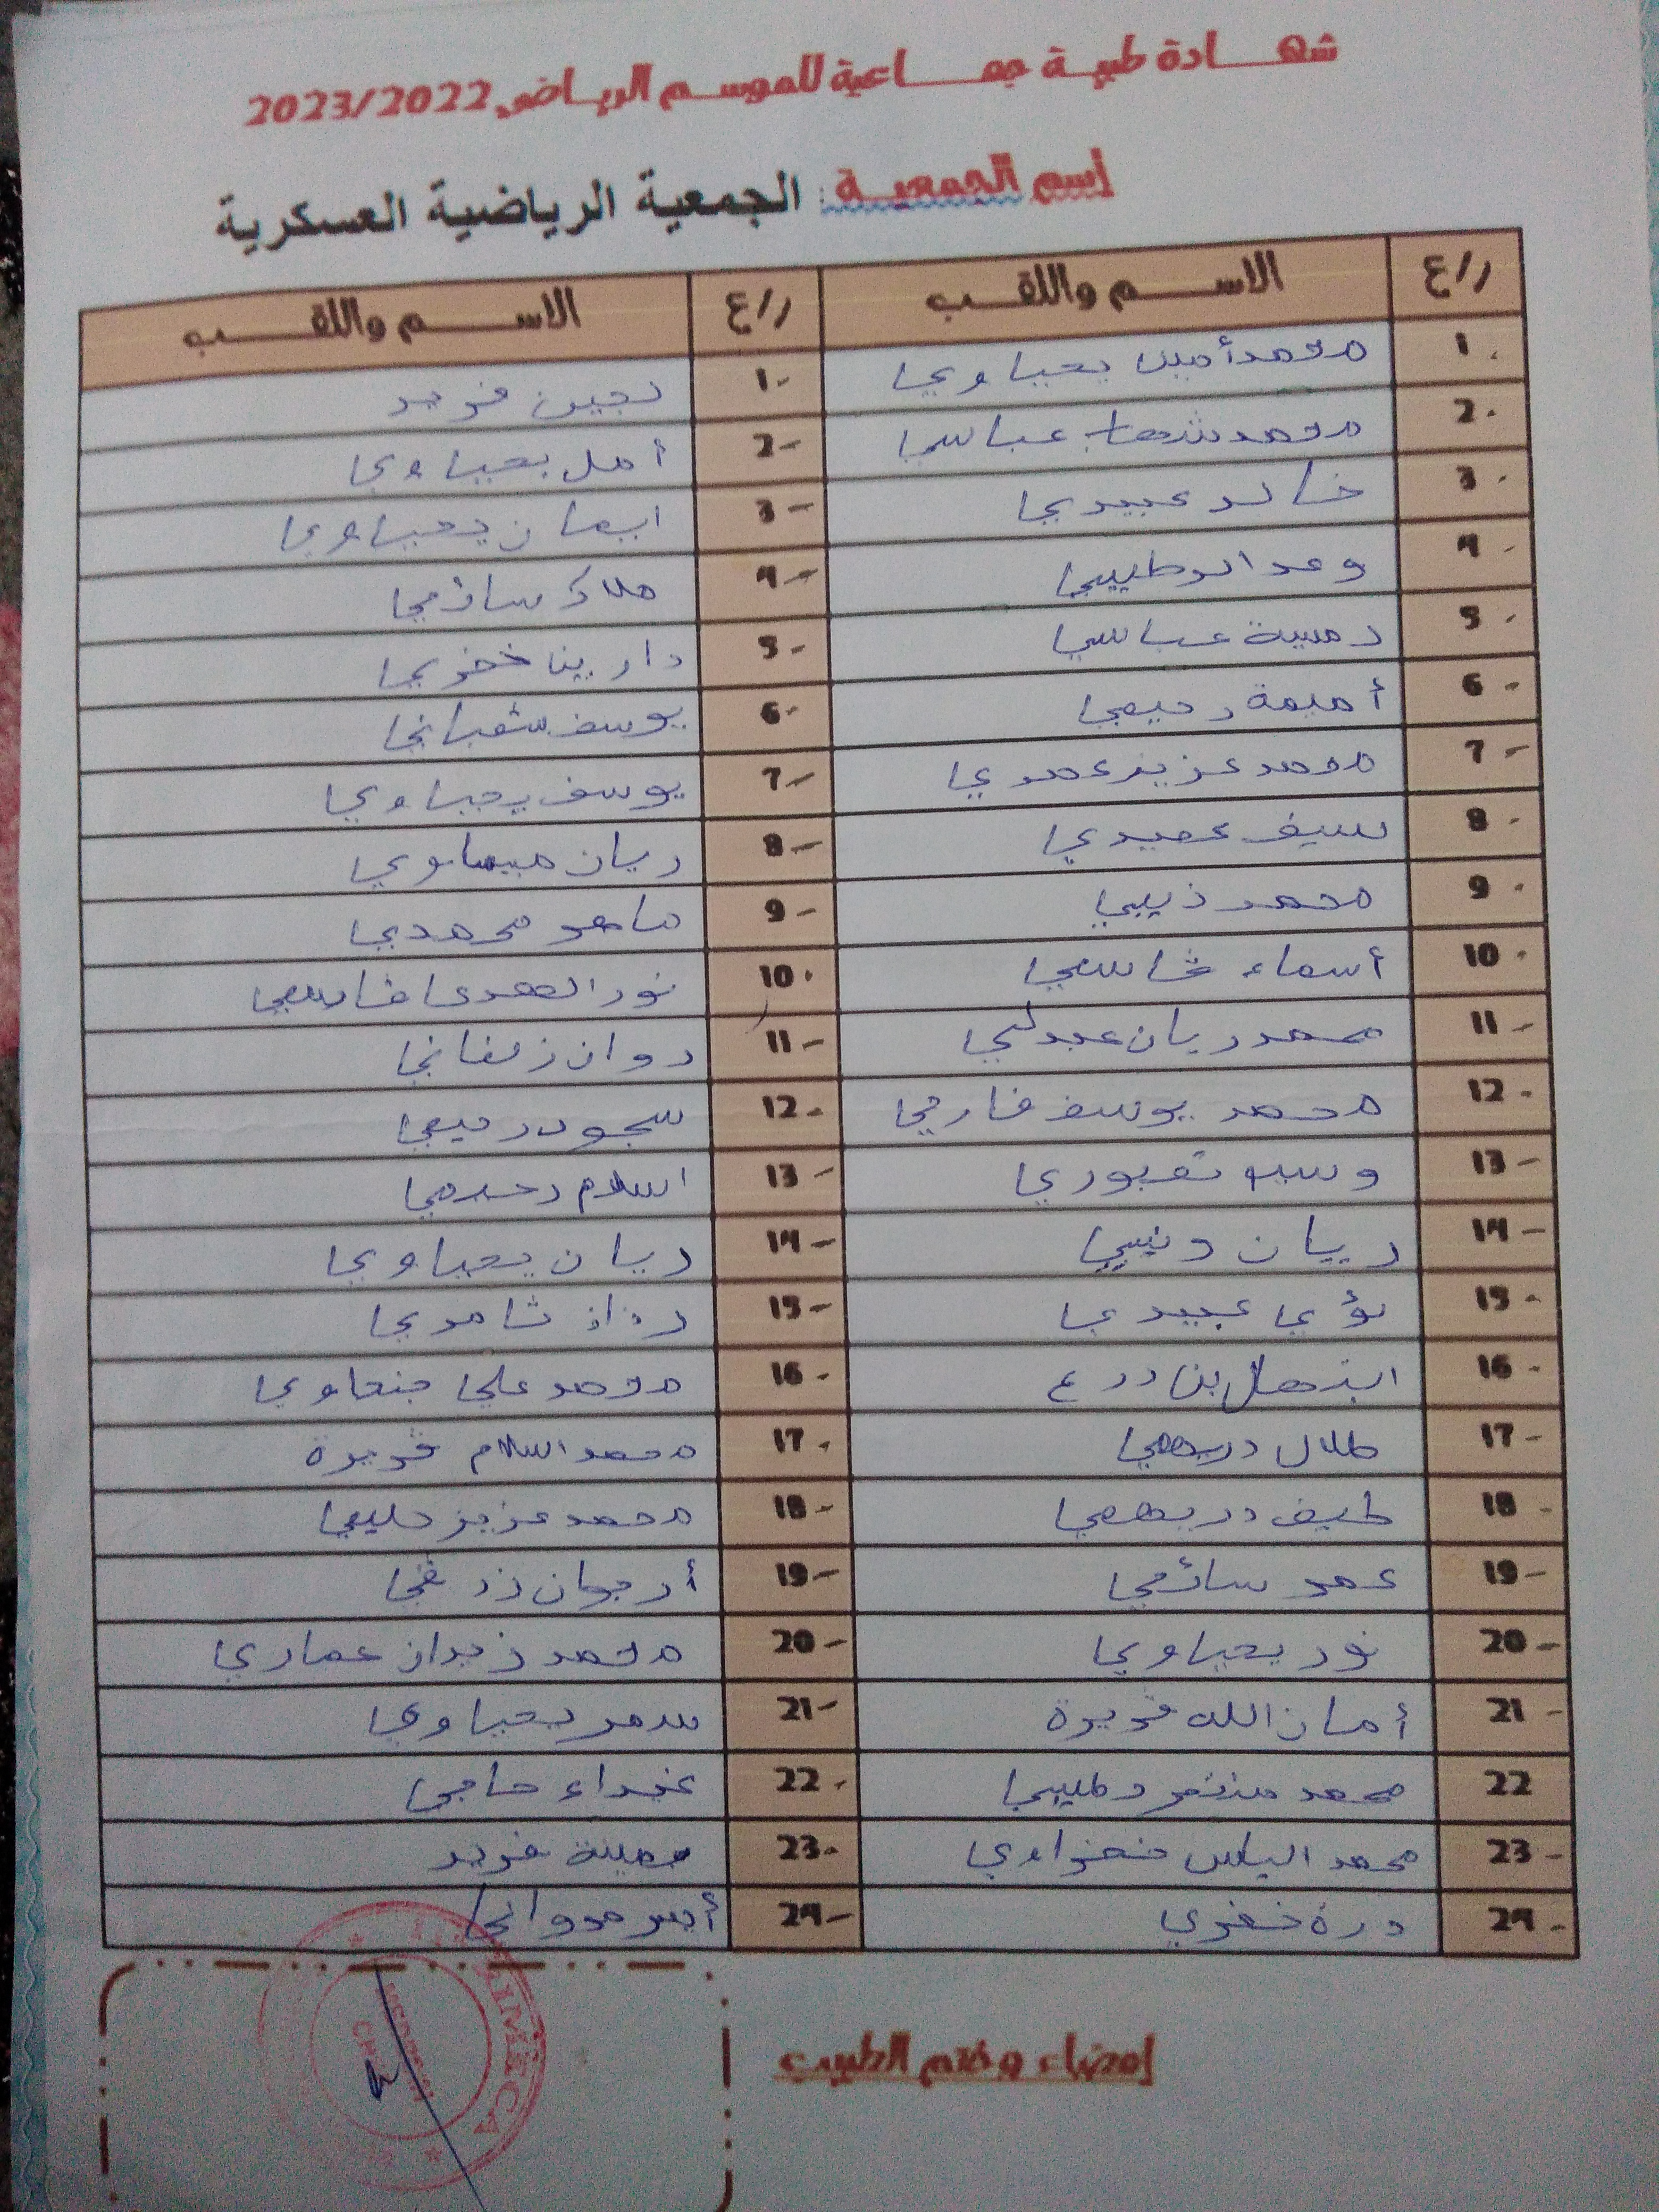 شهادة طبية جماعية للموسم الرياضي 2023/2022
إسم الجمعية : الجمعية الرياضية العسكرية
ر/ع الاسم واللقب ر/ع الاسم واللقب
1. محمد أمين يحياوي 1- لجين فريد
2. محمد شهاب عباسي 2- أمل يحياوي
3. خالد عبيدي 3- ايمان يحياوي
4. وعد الرطيبي 4- ملاك سائمي
5. رمسية عباسي 5- دارين خضري
6- أميمة رحيمي 6- يوسف شعباني
7- محمد عزيز عمري 7- يوسف يحياوي
8. سيف عميدي 8- ريان ميساوي
9. محمد ذيبي 9- ماهر محمدي
10. أسماء قاسمي 10. نور الهدى قاسمي
11- محمد ريان عبدلي 11- روان زلفاني
12. محمد يوسف فارحي 12. سجود رحيمي
13- وسيم تعبوري 13- اسلام رحيمي
14- ريان ونيسي 14- ريان يحياوي
15. لؤي عبيدي 15- رزان ثامري
16. ابتهال بن درع 16. محمد علي جنحاوي
17- طلال دريهمي 17. محمد اسلام قريرة
18. طيف دريهمي 18- محمد عزيز حليمي
19- عمر سائمي 19- أرجوان زرقي
20- نور يحياوي 20- محمد زيدان عماري
21- أمان الله قريرة 21- سمر يحياوي
22 محمد منتصر رطيبي 22. غيداء حاجي
23- محمد الياس نفزاوي 23. يمينة فريد
24. درة خضري 24- أيسر مرواني
إمضاء وختم الطبيب